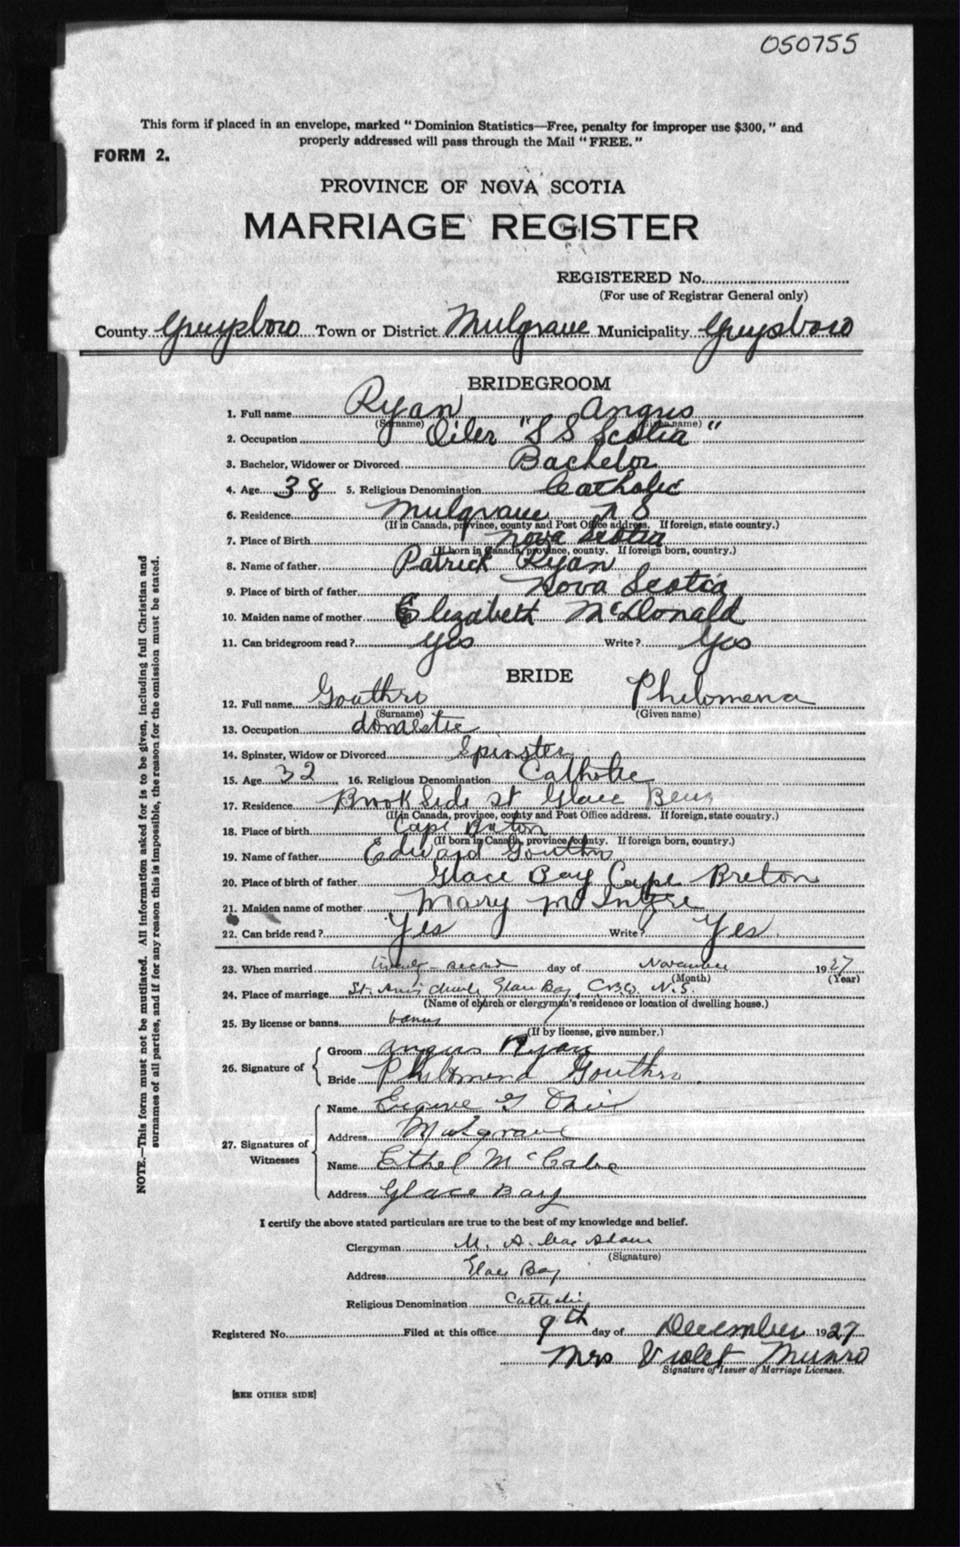 050755
This form if placed in an envelope, marked "Dominion Statistics—Free, penalty for improper use $300," and
properly addressed will pass through the Mail "FREE."
FORM 2.
PROVINCE OF NOVA SCOTIA
MARRIAGE REGISTER
REGISTERED No.
(For use of Registrar General only)
County Guysboro Town or District Mulgrave Municipality Guysboro
BRIDEGROOM
1. Full name Ryan Angus
(Surname) (Given name)
2. Occupation Oiler "S S Scotia"
3. Bachelor, Widower or Divorced Bachelor
4. Age 38 5. Religious Denomination Catholic
6. Residence Mulgrave N S
(If in Canada, province, county and Post Office address. If foreign, state country.)
7. Place of Birth Nova Scotia
(If born in Canada, province, county. If foreign born, country.)
8. Name of father Patrick Ryan
9. Place of birth of father Nova Scotia
10. Maiden name of mother Elizabeth McDonald
11. Can bridegroom read? Yes Write? Yes
BRIDE
12. Full name Gouthro Philomena
(Surname) (Given name)
13. Occupation domestic
14. Spinster, Widow or Divorced Spinster
15. Age 32 16. Religious Denomination Catholic
17. Residence Brook Side St Glace
(If in Canada, province, county and Post Office address. If foreign, state country.)
18. Place of birth Cape Breton
(If born in Canada, province, county. If foreign born, country.)
19. Name of father Edward Gouthro
20. Place of birth of father Glace Bay Cape Breton
21. Maiden name of mother Mary McIntyre
22. Can bride read? Yes Write? Yes
23. When married twenty-second day of November 1927
(Month) (Year)
24. Place of marriage St. Anns Church Glace Bay, C.B.Co. N.S.
(Name of church or clergyman's residence or location of dwelling house.)
25. By license or banns banns
(If by license, give number.)
26. Signature of
Groom Angus Ryan
Bride Philomena Gouthro
27. Signatures of Witnesses
Name Eugene G
Address Mulgrave
Name Ethel McCabe
Address Glace Bay
I certify the above stated particulars are true to the best of my knowledge and belief.
Clergyman M. A. MacAdam
(Signature)
Address Glace Bay
Religious Denomination Catholic
Registered No. Filed at this office 9th day of December 1927
Mrs Violet Munro
Signature of Issuer of Marriage Licenses.
[SEE OTHER SIDE]
NOTE.—This form must not be mutilated. All information asked for is to be given, including full Christian and
surnames of all parties, and if for any reason this is impossible, the reason for the omission must be stated.